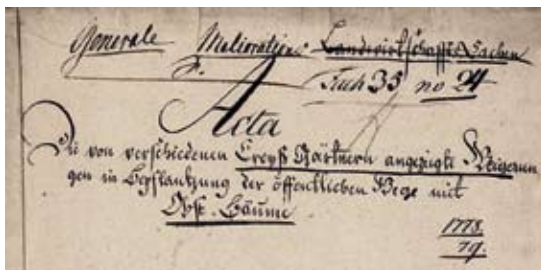 Generale Meliorations Landwirtschaffts Sachen
Fach 35 no 24
Acta
Die von verschiedenen Creyß Gärtnern angezeigte Weigerun
gen in Bepflantzung der öffentlichen Wege mit
Obst-Bäume
1778
79.